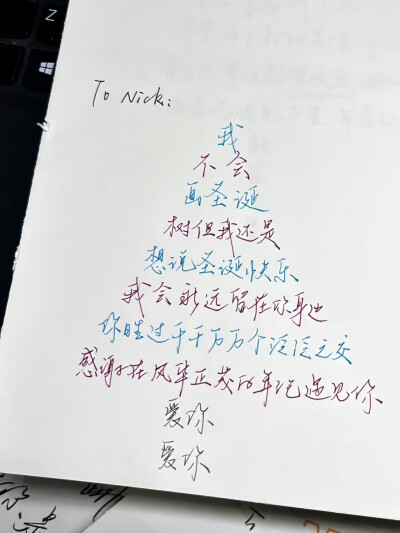 To Nick:
我
不会
画圣诞
树但我还是
想说圣诞快乐
我会永远留在你身边
你胜过千千万万个泛泛之交
感谢在风华正茂的年纪遇见你
爱你
爱你
Z